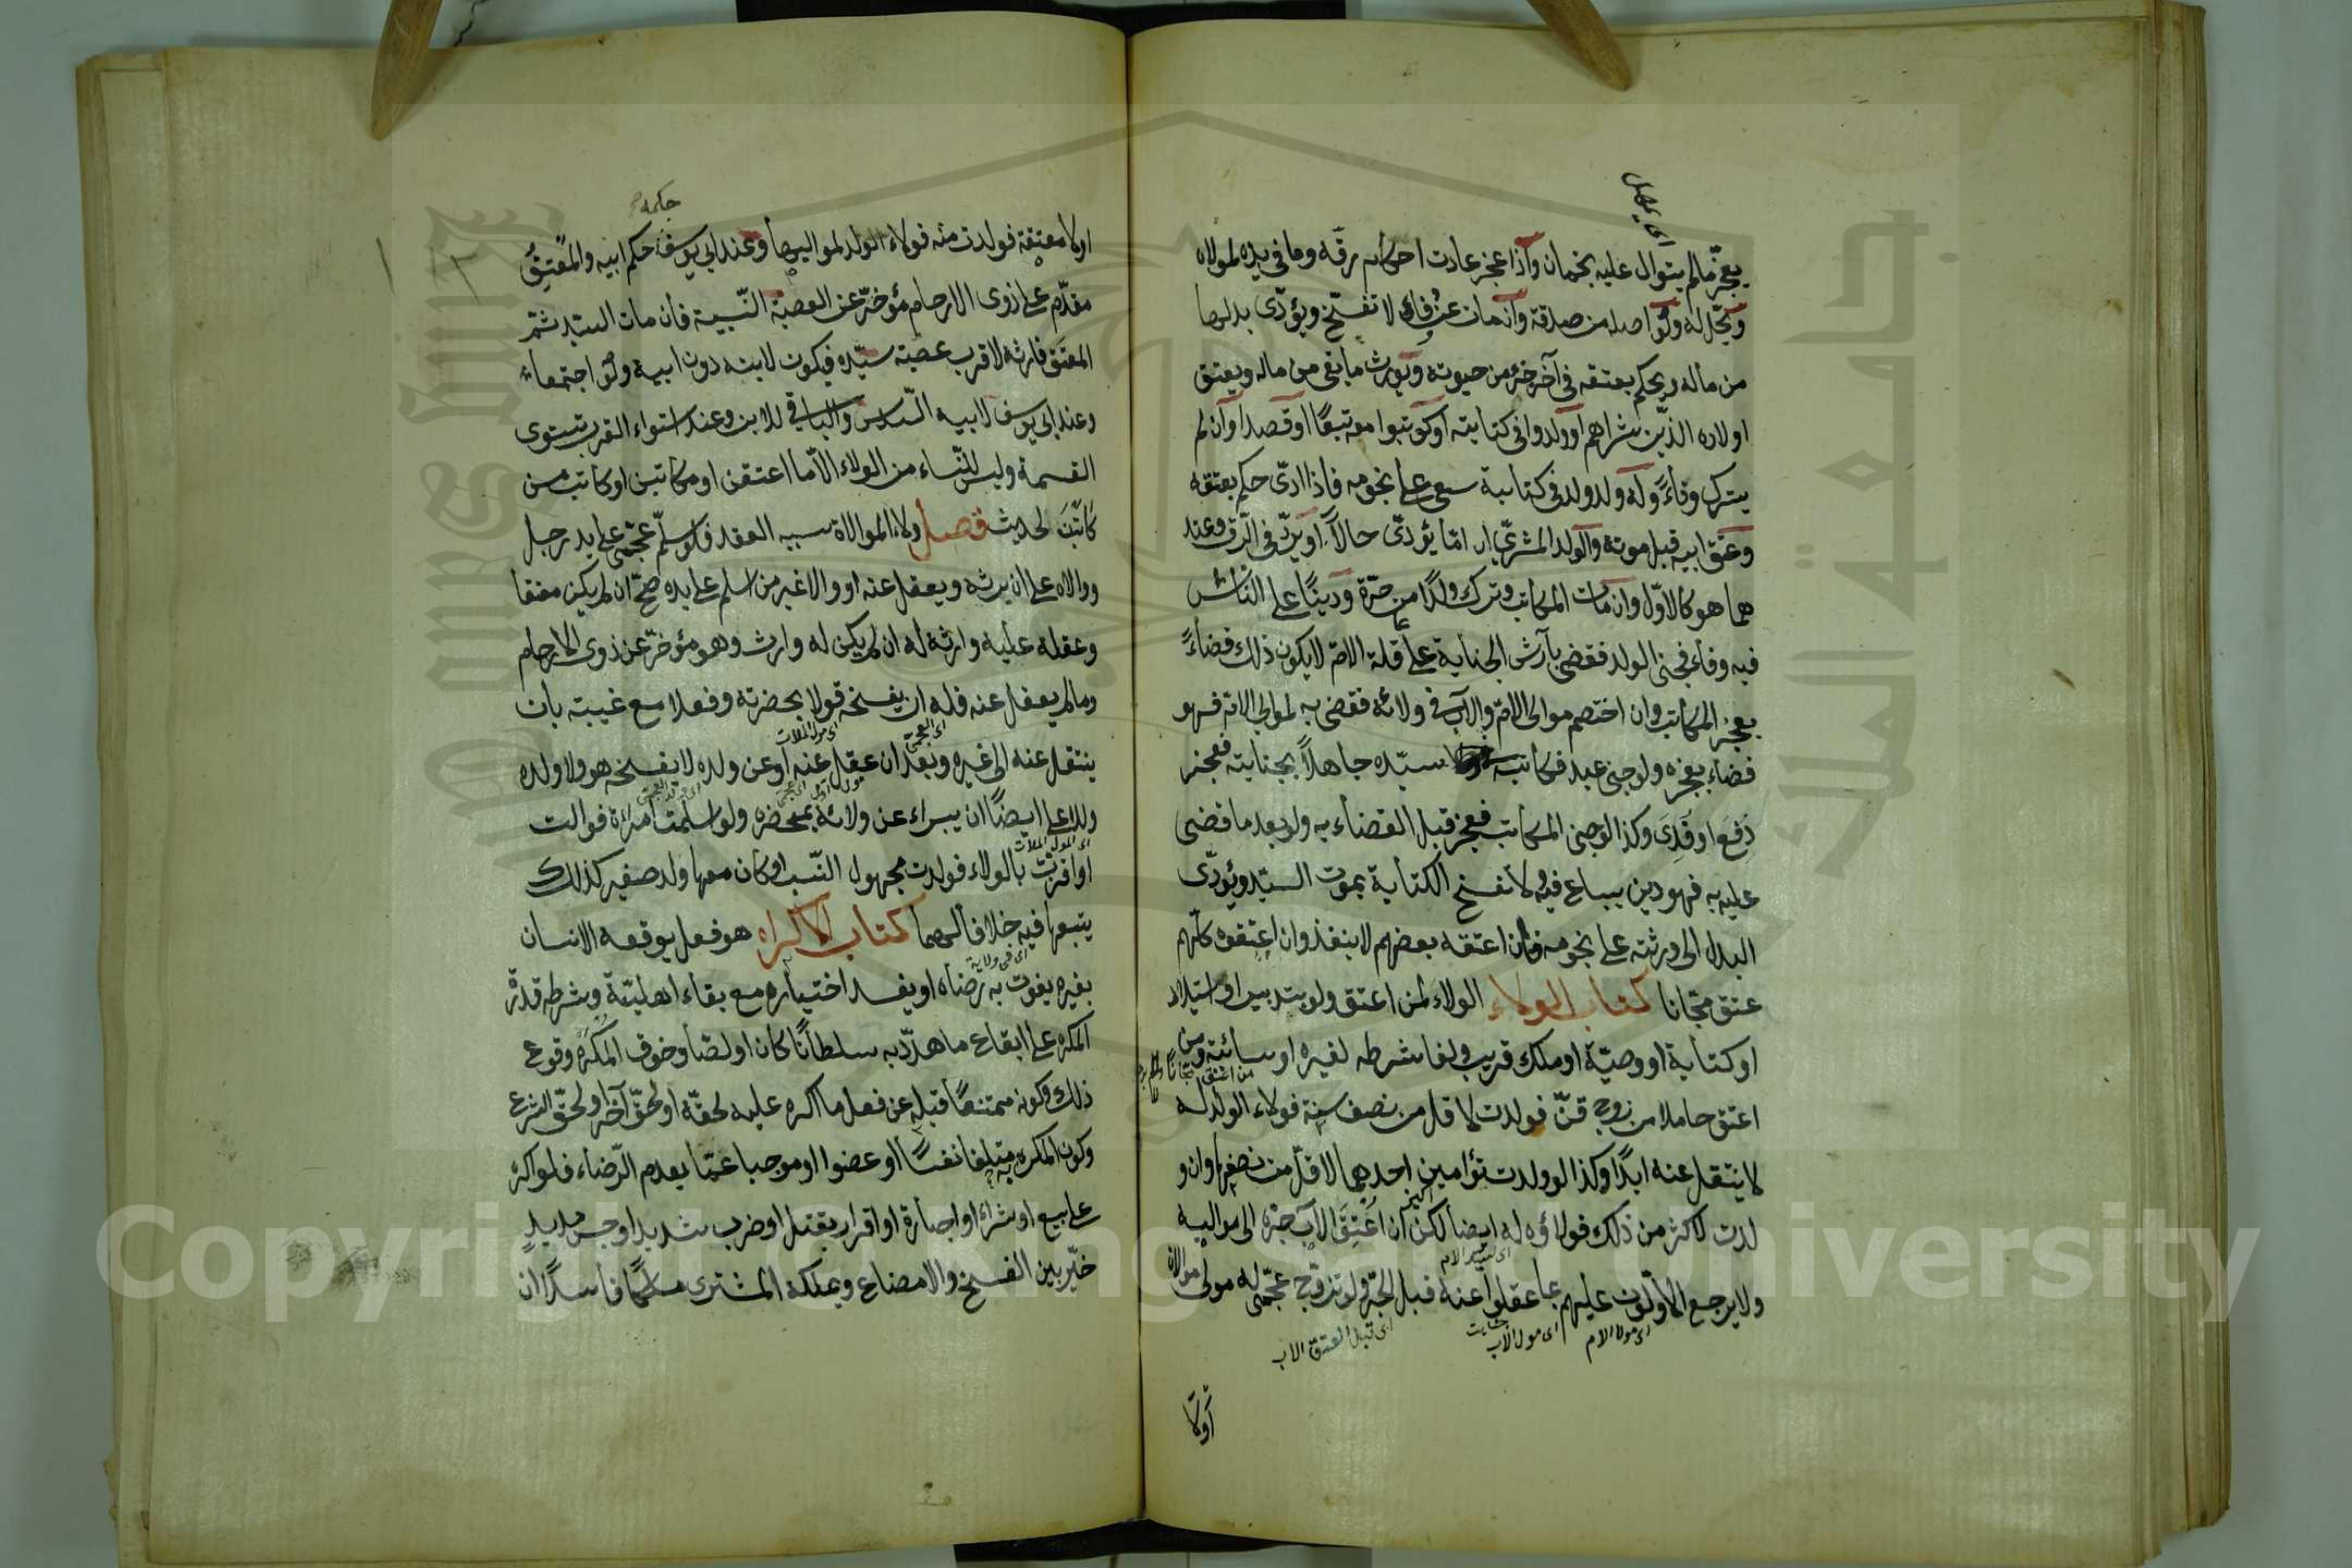 يعجز ما لم يتوال عليه نجمان واذا عجز عادت احكام رقه وما في يده لمولاه
ويحل له ولو اصله من صدقة وان مات عن وفاء لا تفسخ ويؤدى بدلها
من ماله ويحكم بعتقه في آخر جزء من حيوته ويورث ما بقى من ماله ويعتق
اولاده الذين شراهم او ولدوا في كتابته او كوتبوا معه تبعًا او قصدا وان لم
يترك وفاءً وله ولد ولد في كتابية سعى على نجومه فاذا ادّى حكم بعتقه
وعتق ابيه قبل موته والولد المشرى اما يؤدّى حالاً او يردّ في الرّق وعند
هما هو كالاوّل وان مات المكاتب وترك ولدًا من حرّة ودينًا على الناس
فيه وفاء فجنى الولد فقضى بارش الجناية على عاقلة الامّ لا يكون ذلك قضاءً
بعجز المكاتب وان اختصم موالى الامّ والاب في ولائه فقضى به لموالى الامّ فهو
قضاء بعجزه ولو جنى عبد فكاتبه سيّده جاهلاً بجنايته فعجز
دفع او فدى وكذا لو جنى المكاتب فعجز قبل القضاء به ولو بعد ما قضى
عليه به فهو دين يباع فيه ولا تفسخ الكتابة بموت السيّد ويؤدّى
البدل الى ورثته على نجومه فان اعتقه بعضهم لا ينفذ وان اعتقوه كلّهم
عتق مجّانا كتاب الولاء الولاء لمن اعتق ولو بتدبير او استيلاد
او كتابة او وصيّة او ملك قريب ولغا شرطه لغيره او سائبة ومن
اعتق حاملا من زوج قنّ فولدت لاقل من نصف سنة فولاء الولد له
لا ينتقل عنه ابدًا وكذا لو ولدت توأمين احدهما لاقلّ من نصفها وان و
لدت لاكثر من ذلك فولاؤه له ايضا لكن ان اعتق الاب جرّه الى مواليه
ولا يرجع الاوّلون عليهم بما عقلوا عنه قبل الجرّ ولو تزوّج عجمىّ له مولى موالاة
اى مولا الام اى مولى الاب
اى قبل العتق الاب
اولا
او لا معتقة فولدت منه فولاء الولد لمواليها وعند ابي يوسف حكم ابيه والمعتق
مقدّم على ذوى الارحام مؤخّر عن العصبة النّسبية فان مات السيّد ثم
المعتق فارثه لاقرب عصبة سيّده فيكون لابنه دون ابيه ولو اجتمعا
وعند ابي يوسف لابيه السّدس والباقي للابن وعند استواء القرب تستوى
القسمة وليس للنّساء من الولاء الاّ ما اعتقن او من كاتبن او كاتب من
كاتبن لحديث فصل ولاء الموالاة سببه العقد فلو اسلم عجمىّ على يد رجل
ووالاه على ان يرثه ويعقل عنه او والا غير من اسلم على يده صحّ ان لم يكن معتقا
وعقله عليه وارثه له ان لم يكن له وارث وهو مؤخّر عن ذوى الارحام
وما لم يعقل عنه فله ان يفسخه قولا بحضرته وفعلا مع غيبته بان
ينتقل عنه الى غيره وبعد ان عقل عنه او عن ولده لا يفسخه هو ولا ولده
وللاعلى ايضًا ان يبراء عن ولائه بمحضره ولو اسلمت امرءة فوالت
او اقرّت بالولاء فولدت مجهول النّسب او كان معها ولد صغير كذلك
يتبعها فيه خلافا لهما كتاب الاكراه هو فعل يوقعه الانسان
بغيره يفوت به رضاه او يفسد اختياره مع بقاء اهليّته وشرطه قدرة
المكره على ايقاع ما هدّد به سلطانًا كان او لصّا وخوف المكره وقوع
ذلك وكونه ممتنعًا قبله عن فعل ما اكره عليه لحقّه او لحقّ آخر او لحقّ الشرع
وكون المكره به متلفا نفسًا او عضوا او موجبا غمّا يعدم الرّضاء فلو اكره
على بيع او شراء او اجارة او اقرار بقتل او ضرب شديد او حبس مديد
خيّر بين الفسخ والامضاء ويملكه المشترى ملكًا فاسدًا ان
Copyright © King Saud University